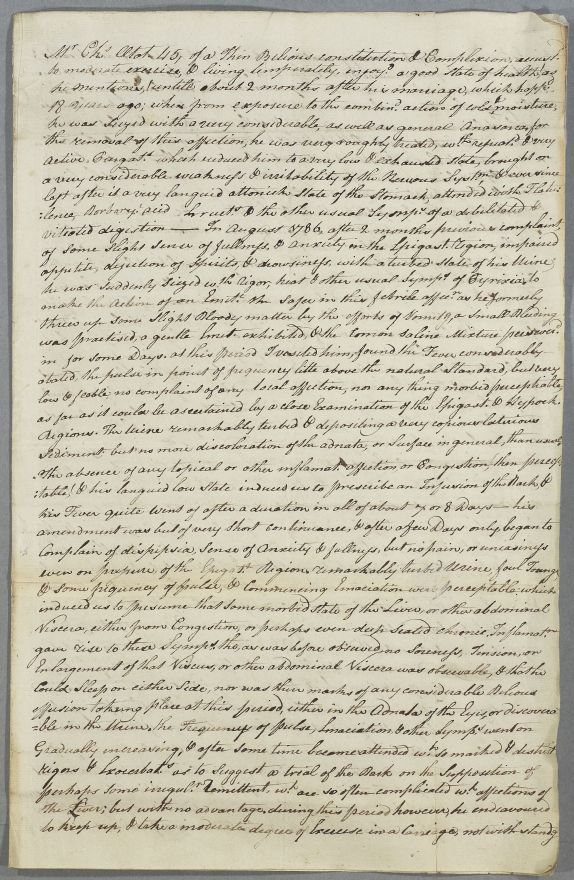 Mr. Chs. Ætat. 45, of a Thin Bilious constitution & Complexion, accust.
to moderate exercise, & living temperately, enjoyd. a good State of health, as
he mentions, (untill about 2 months after his marriage, which happd.
18 years ago; when from exposure to the combind. action of cold & moisture,
he was Seized with a very considerable, as well as general Anasarca, for
the removal of this affection, he was very roughly treated, wth. repeatd. & very
Active Purgats. which reduced him to a very low & exhausted State, brought on
a very considerable weakness & irritability of the Nervous System & ever since
left after it a very languid attonick State of the Stomach, attended with Flatu-
:lence, Borborygi acid Eructs. & the other usual Symps. of a debilitated &
vitiated digestion — In August 1786, after 2 months previous complaint
of some Slight Sense of fullness, & anxiety in the Epigast. region, impaired
appetite, dejection of Spirits, & drowsiness, with a turbed State of his Urine
he was Suddenly Seized wth. Rigor, heat & other usual Symps. of Pyrexia, to
make the Action of an Emitc. the Safer in this febrile affecn. as he formerly
threw up Some Slight Bloody matter by the efforts of Vomitg, a Small Bleeding
was practised, a gentle Emet. exhibited, & the common Saline Mixture persever'd
in for Some Days. at this period I visited him, found the Fever considerably
abated, the pulse in point of frequency little above the natural Standard, but very
low & feeble, no complaint of any local affection, nor any thing morbid perceptible,
as far as it could be ascertained by a close Examination of the Epigast. & Hypoch.
Regions. The Urine remarkably turbid & depositing a very copious lateritious
Sediment but no more discoloration of the adnata, or Surface in general, than usual,
The absence of any topical or other inflamat. affection or Congestion, then percep-
:table, & his languid low State induced us to prescribe an Infusion of the Bark, &
his Fever quite went of after a duration in all of about 7 or 8 Days — his
amendment was but of very Short continuance, & after a few Days only, began to
Complain of dispepsia, Sense of Anxiety & fullness, but no pain, or uneasiness
even on pressure of the Epigast. Region, remarkably turbid Urine, foul Tongue,
& Some frequency of pulse, & Commencing Emaciation were perceptable which
induced us to presume that Some morbid State of the Liver or other abdominal
Viscera, either from Congestion, or perhaps even deep Seated chronic Inflamatn.
gave rise to these Symps. tho, as was before observed, no Soreness, Tension, or
Enlargement of that Viscus, or other abdominal Viscera was observable, & that he
Could Sleep on either Side, nor was there marks of any considerable Bilious
effusion taking place at this period either in the Adnata of the Eyes, or discovera
=ble in the Urine. the Frequency of Pulse, Emaciation & other Symps. went on
Gradually increasing, & after Some time became attended wt. so marked & distinct
rigors & Exacerbats. as to Suggest a trial of the Bark on the Supposition of
perhaps Some irregulr. remittent, wh. are so often complicated wt. affections of
the Liver; but with no advantage, during this period however, he endeavoured
to keep up, & take a moderate degree of Exercise in a Carriage, notwithstandg.